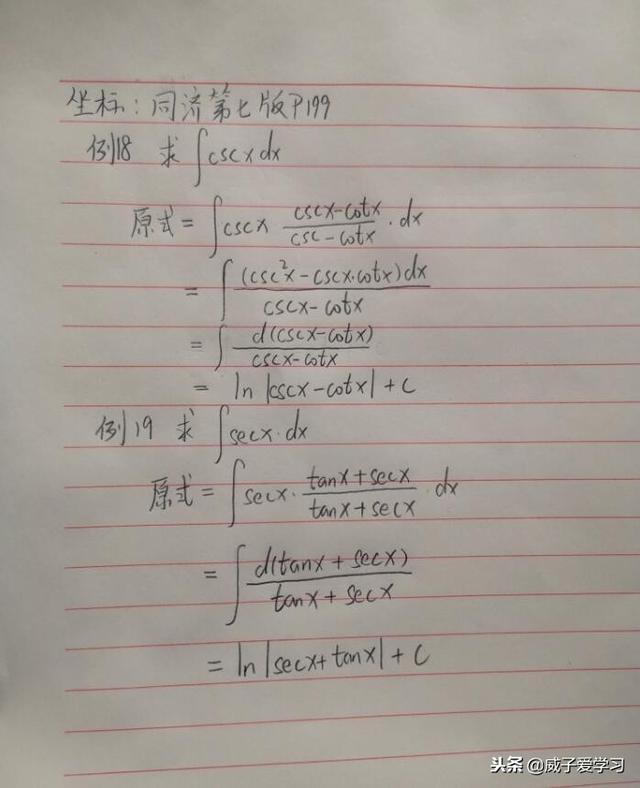 坐标:同济第七版P199
例18 求 ∫cscx dx
原式 = ∫cscx (cscx-cotx)/(csc-cotx) · dx
= ∫ (csc²x-cscx·cotx)dx/(cscx-cotx)
= ∫ d(cscx-cotx)/(cscx-cotx)
= ln|cscx-cotx|+C
例19 求 ∫secx·dx
原式 = ∫secx· (tanx+secx)/(tanx+secx) · dx
= ∫ d(tanx+secx)/(tanx+secx)
= ln|secx+tanx|+C
头条 @威子爱学习